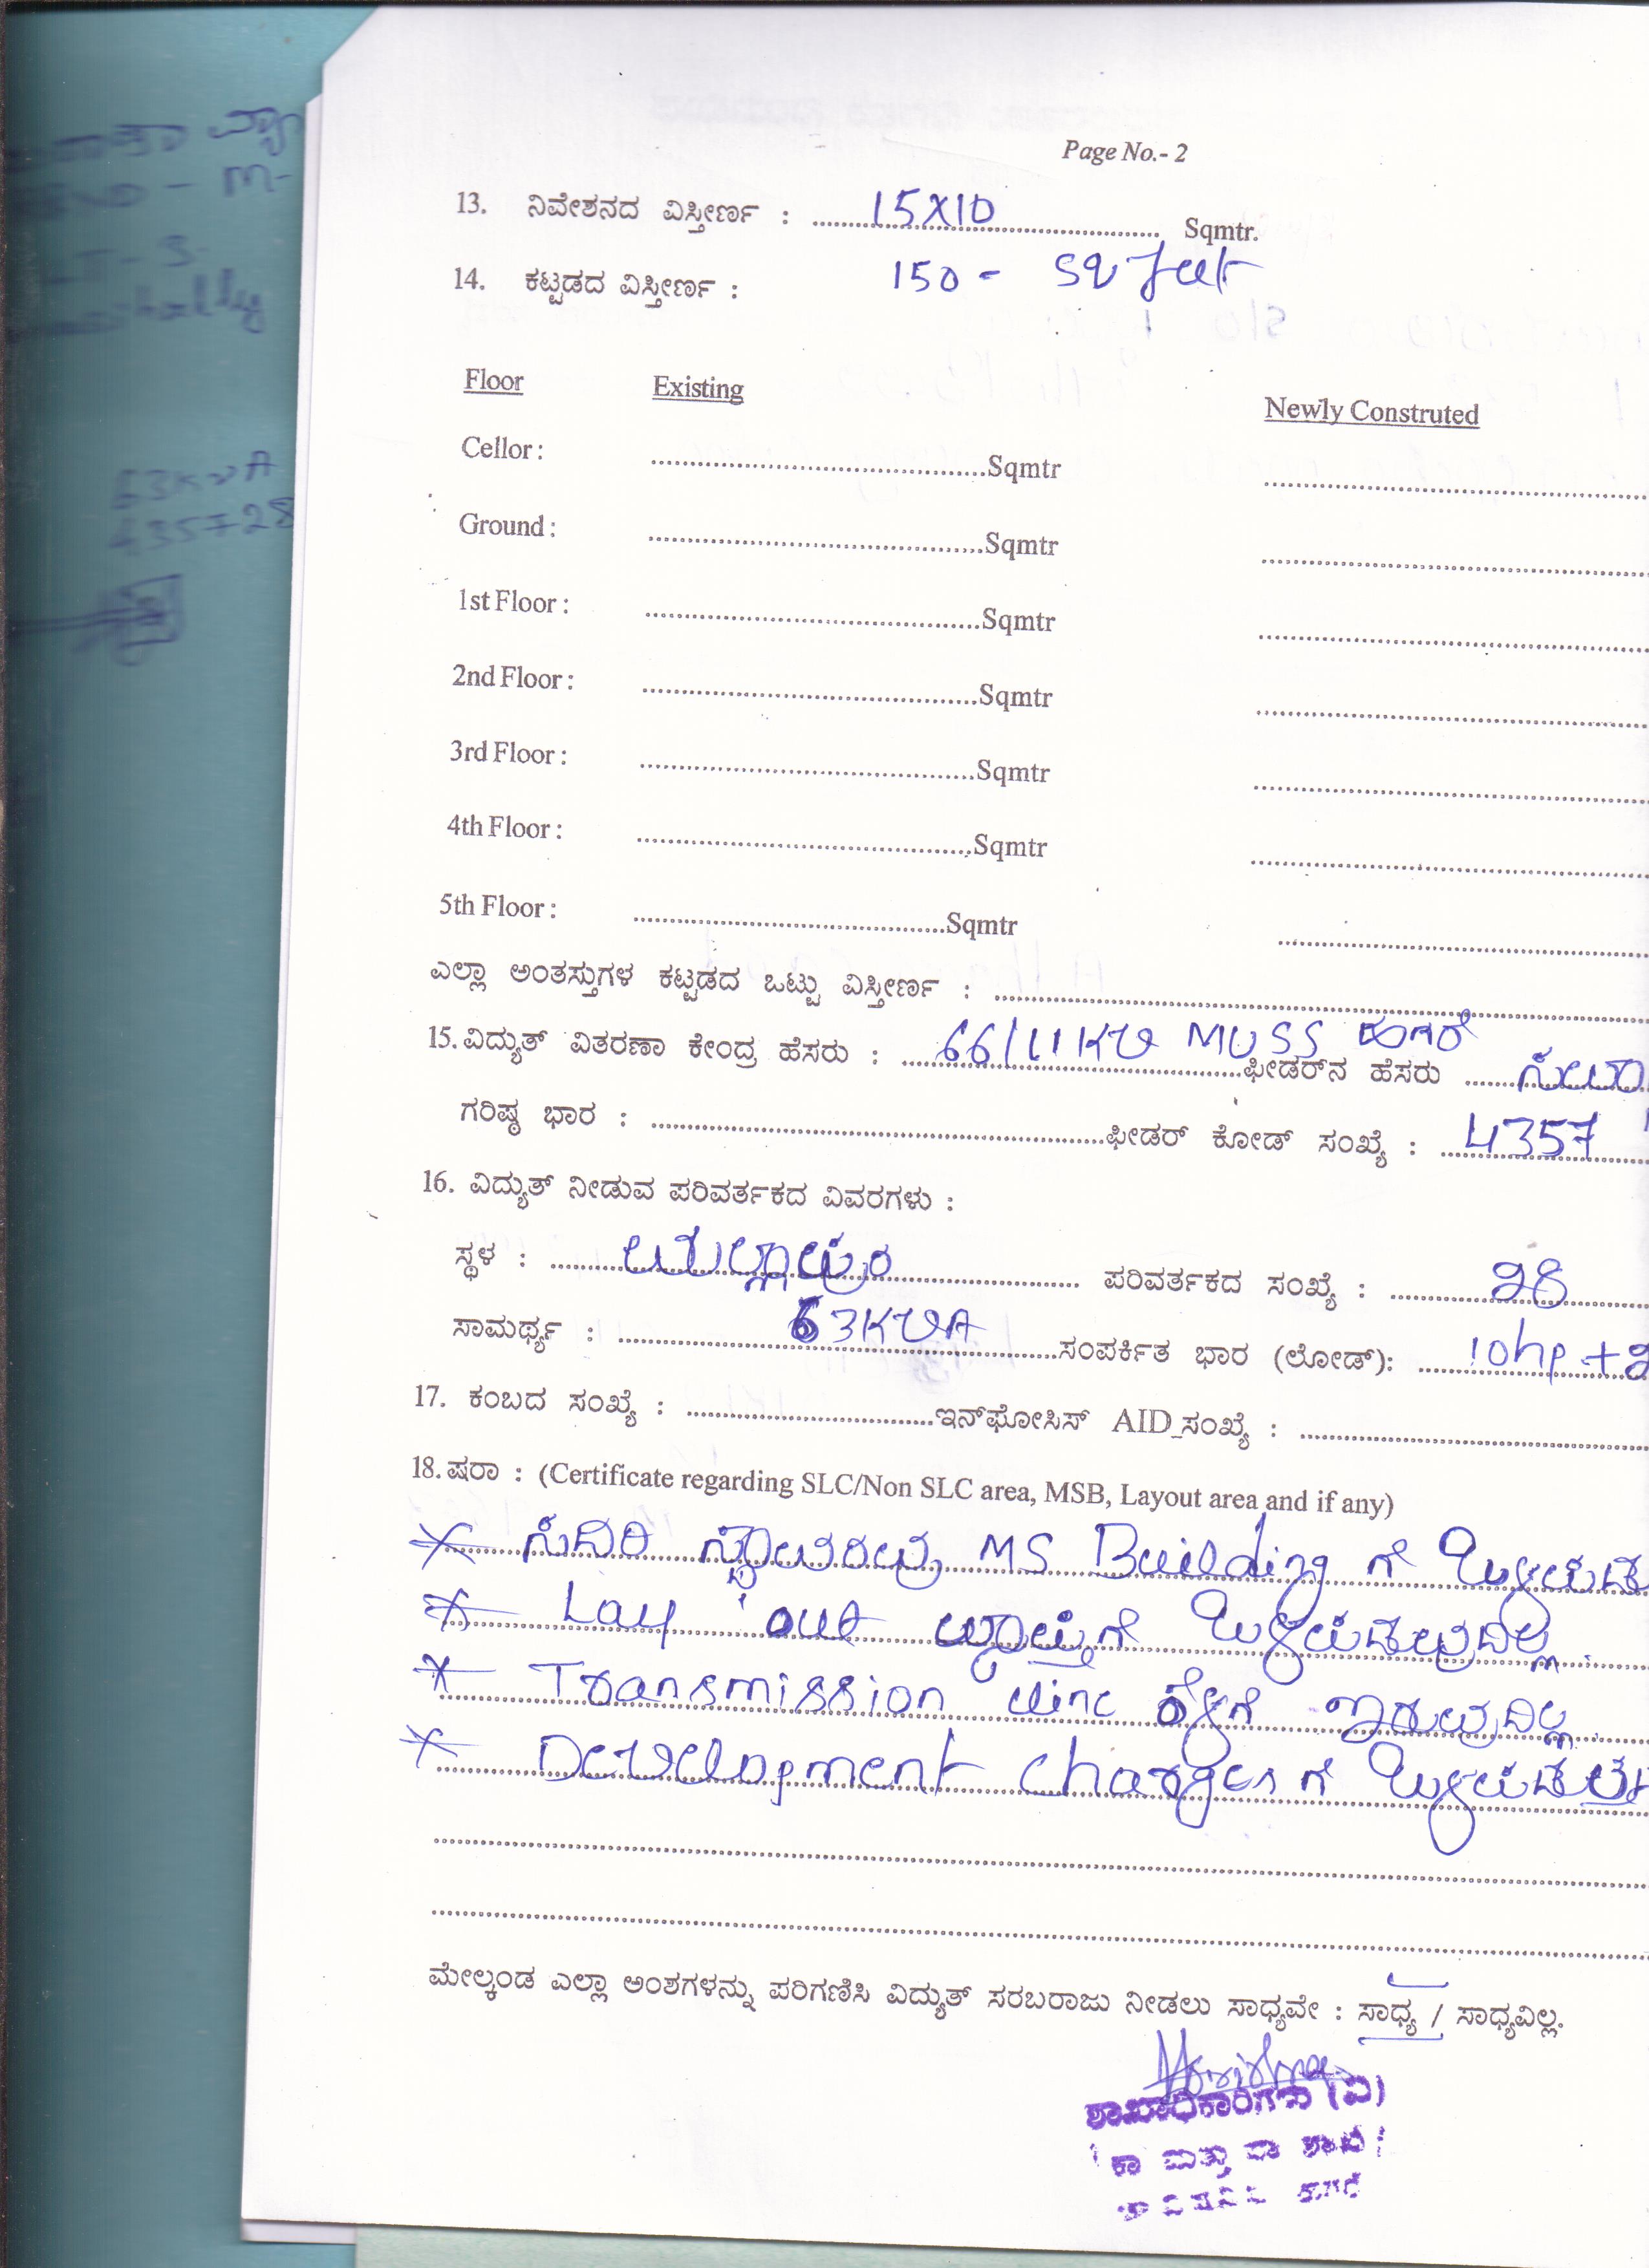 Page No.- 2
13. ನಿವೇಶನದ ವಿಸ್ತೀರ್ಣ : 15X10 Sqmtr.
14. ಕಟ್ಟಡದ ವಿಸ್ತೀರ್ಣ : 150 - sq feet
Floor Existing Newly Construted
Cellor : Sqmtr
Ground : Sqmtr
1st Floor : Sqmtr
2nd Floor : Sqmtr
3rd Floor : Sqmtr
4th Floor : Sqmtr
5th Floor : Sqmtr
ಎಲ್ಲಾ ಅಂತಸ್ತುಗಳ ಕಟ್ಟಡದ ಒಟ್ಟು ವಿಸ್ತೀರ್ಣ :
15. ವಿದ್ಯುತ್ ವಿತರಣಾ ಕೇಂದ್ರ ಹೆಸರು : 66/11KV MUSS ಫೀಡರ್‌ನ ಹೆಸರು
ಗರಿಷ್ಠ ಭಾರ : ಫೀಡರ್ ಕೋಡ್ ಸಂಖ್ಯೆ : 4357
16. ವಿದ್ಯುತ್ ನೀಡುವ ಪರಿವರ್ತಕದ ವಿವರಗಳು :
ಸ್ಥಳ : ಪರಿವರ್ತಕದ ಸಂಖ್ಯೆ : 28
ಸಾಮರ್ಥ್ಯ : 63KVA ಸಂಪರ್ಕಿತ ಭಾರ (ಲೋಡ್): 10hp +
17. ಕಂಬದ ಸಂಖ್ಯೆ : ಇನ್‌ಫೋಸಿಸ್ AID_ಸಂಖ್ಯೆ :
18. ಷರಾ : (Certificate regarding SLC/Non SLC area, MSB, Layout area and if any)
ಸ್ಥಾವರವು MS Building ಗೆ
Lay out ವ್ಯಾಪ್ತಿಗೆ ಒಳಪಡುವುದಿಲ್ಲ.
Transmission line ಕೆಳಗೆ ಇರುವುದಿಲ್ಲ
Development charges ಗೆ
ಮೇಲ್ಕಂಡ ಎಲ್ಲಾ ಅಂಶಗಳನ್ನು ಪರಿಗಣಿಸಿ ವಿದ್ಯುತ್ ಸರಬರಾಜು ನೀಡಲು ಸಾಧ್ಯವೇ : ಸಾಧ್ಯ / ಸಾಧ್ಯವಿಲ್ಲ.
ಶಾಖಾಧಿಕಾರಿಗಳು (ವಿ)
ಕಾ ಮತ್ತು ಪಾ ಶಾಖೆ